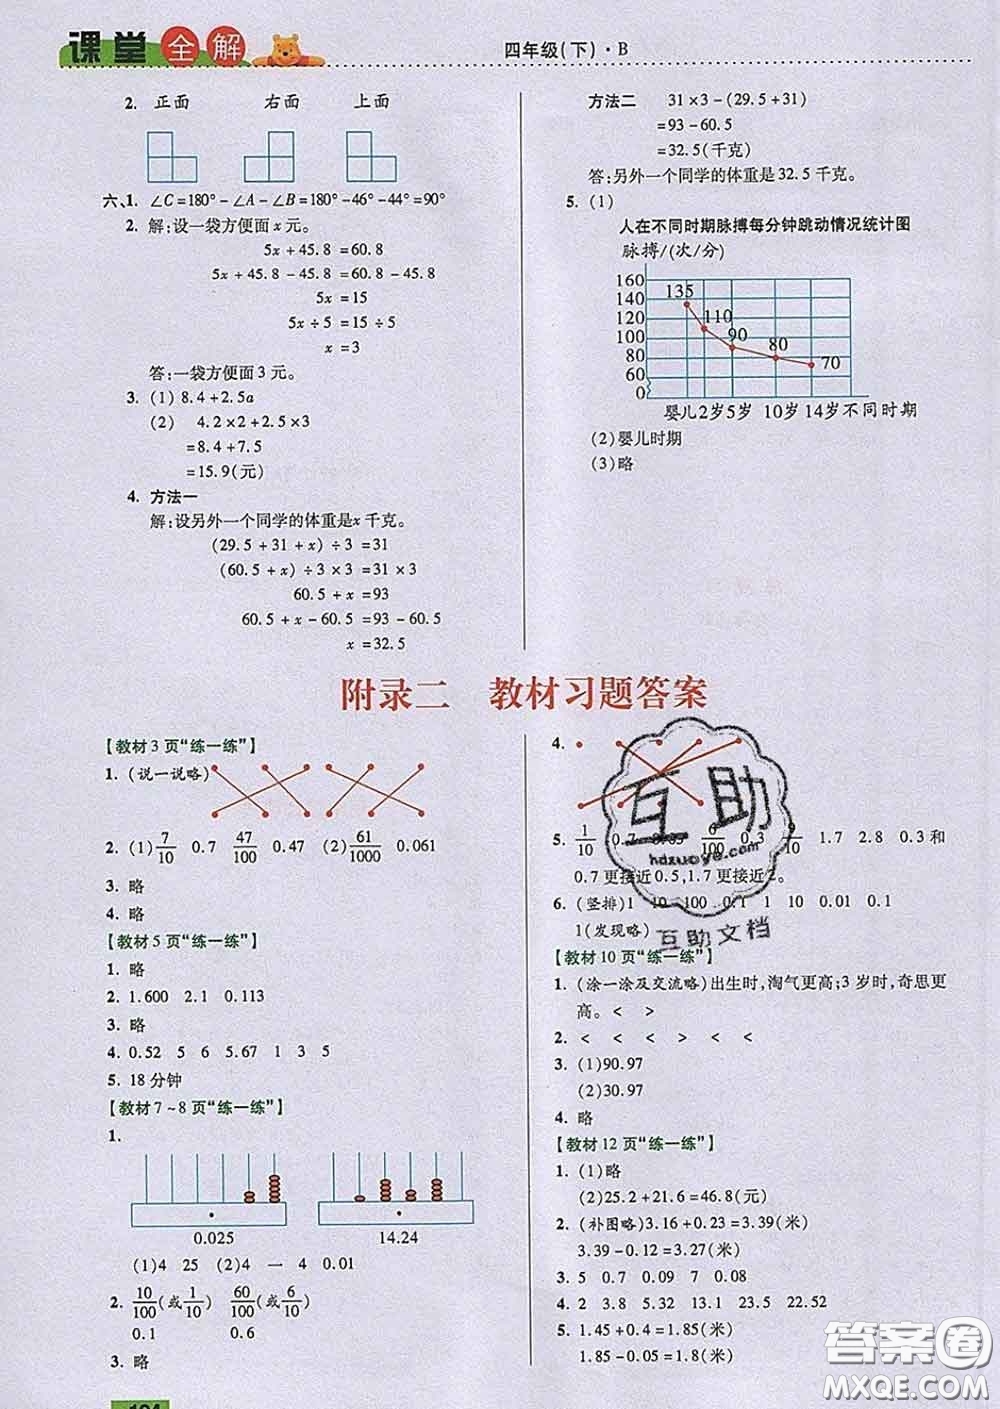 课堂全解
四年级(下)·B
2. 正面 右面 上面
六、1. ∠C=180°-∠A-∠B=180°-46°-44°=90°
2. 解:设一袋方便面x元。
5x+45.8=60.8
5x+45.8-45.8=60.8-45.8
5x=15
5x÷5=15÷5
x=3
答:一袋方便面3元。
3. (1) 8.4+2.5a
(2) 4.2×2+2.5×3
=8.4+7.5
=15.9(元)
4. 方法一
解:设另外一个同学的体重是x千克。
(29.5+31+x)÷3=31
(60.5+x)÷3×3=31×3
60.5+x=93
60.5+x-60.5=93-60.5
x=32.5
方法二 31×3-(29.5+31)
=93-60.5
=32.5(千克)
答:另外一个同学的体重是32.5千克。
5. (1)
人在不同时期脉搏每分钟跳动情况统计图
脉搏/(次/分)
160
140
120
100
80
60
0
135
110
90
80
70
婴儿2岁5岁 10岁 14岁不同时期
(2)婴儿时期
(3)略
附录二 教材习题答案
【教材3页“练一练”】
1. (说一说略)
2. (1) 7/10 0.7 47/100 0.47 (2) 61/1000 0.061
3. 略
4. 略
【教材5页“练一练”】
1. 略
2. 1.600 2.1 0.113
3. 略
4. 0.52 5 6 5.67 1 3 5
5. 18分钟
【教材7~8页“练一练”】
1.
0.025 14.24
(1)4 25 (2)4 一 4 0.01
2. 10/100(或1/10) 60/100(或6/10)
0.1 0.6
3. 略
4.
5. 1/10 0.7 /100 0.3 /10 1.7 2.8 0.3和
0.7更接近0.5,1.7更接近2。
6. (竖排)1 10 100 0.1 1 10 0.01 0.1
1(发现略)
【教材10页“练一练”】
1. (涂一涂及交流略)出生时,淘气更高;3岁时,奇思更
高。< >
2. < < < > < <
3. (1)90.97
(2)30.97
4. 略
【教材12页“练一练”】
1. (1)略
(2)25.2+21.6=46.8(元)
2. (补图略)3.16+0.23=3.39(米)
3.39-0.12=3.27(米)
3. 5 0.7 0.09 7 0.08
4. 2 3.8 5.32 13.1 23.5 22.52
5. 1.45+0.4=1.85(米)
1.85-0.05=1.8(米)
互助
hdzuoye.com
互助文档
答案圈
MXQE.COM